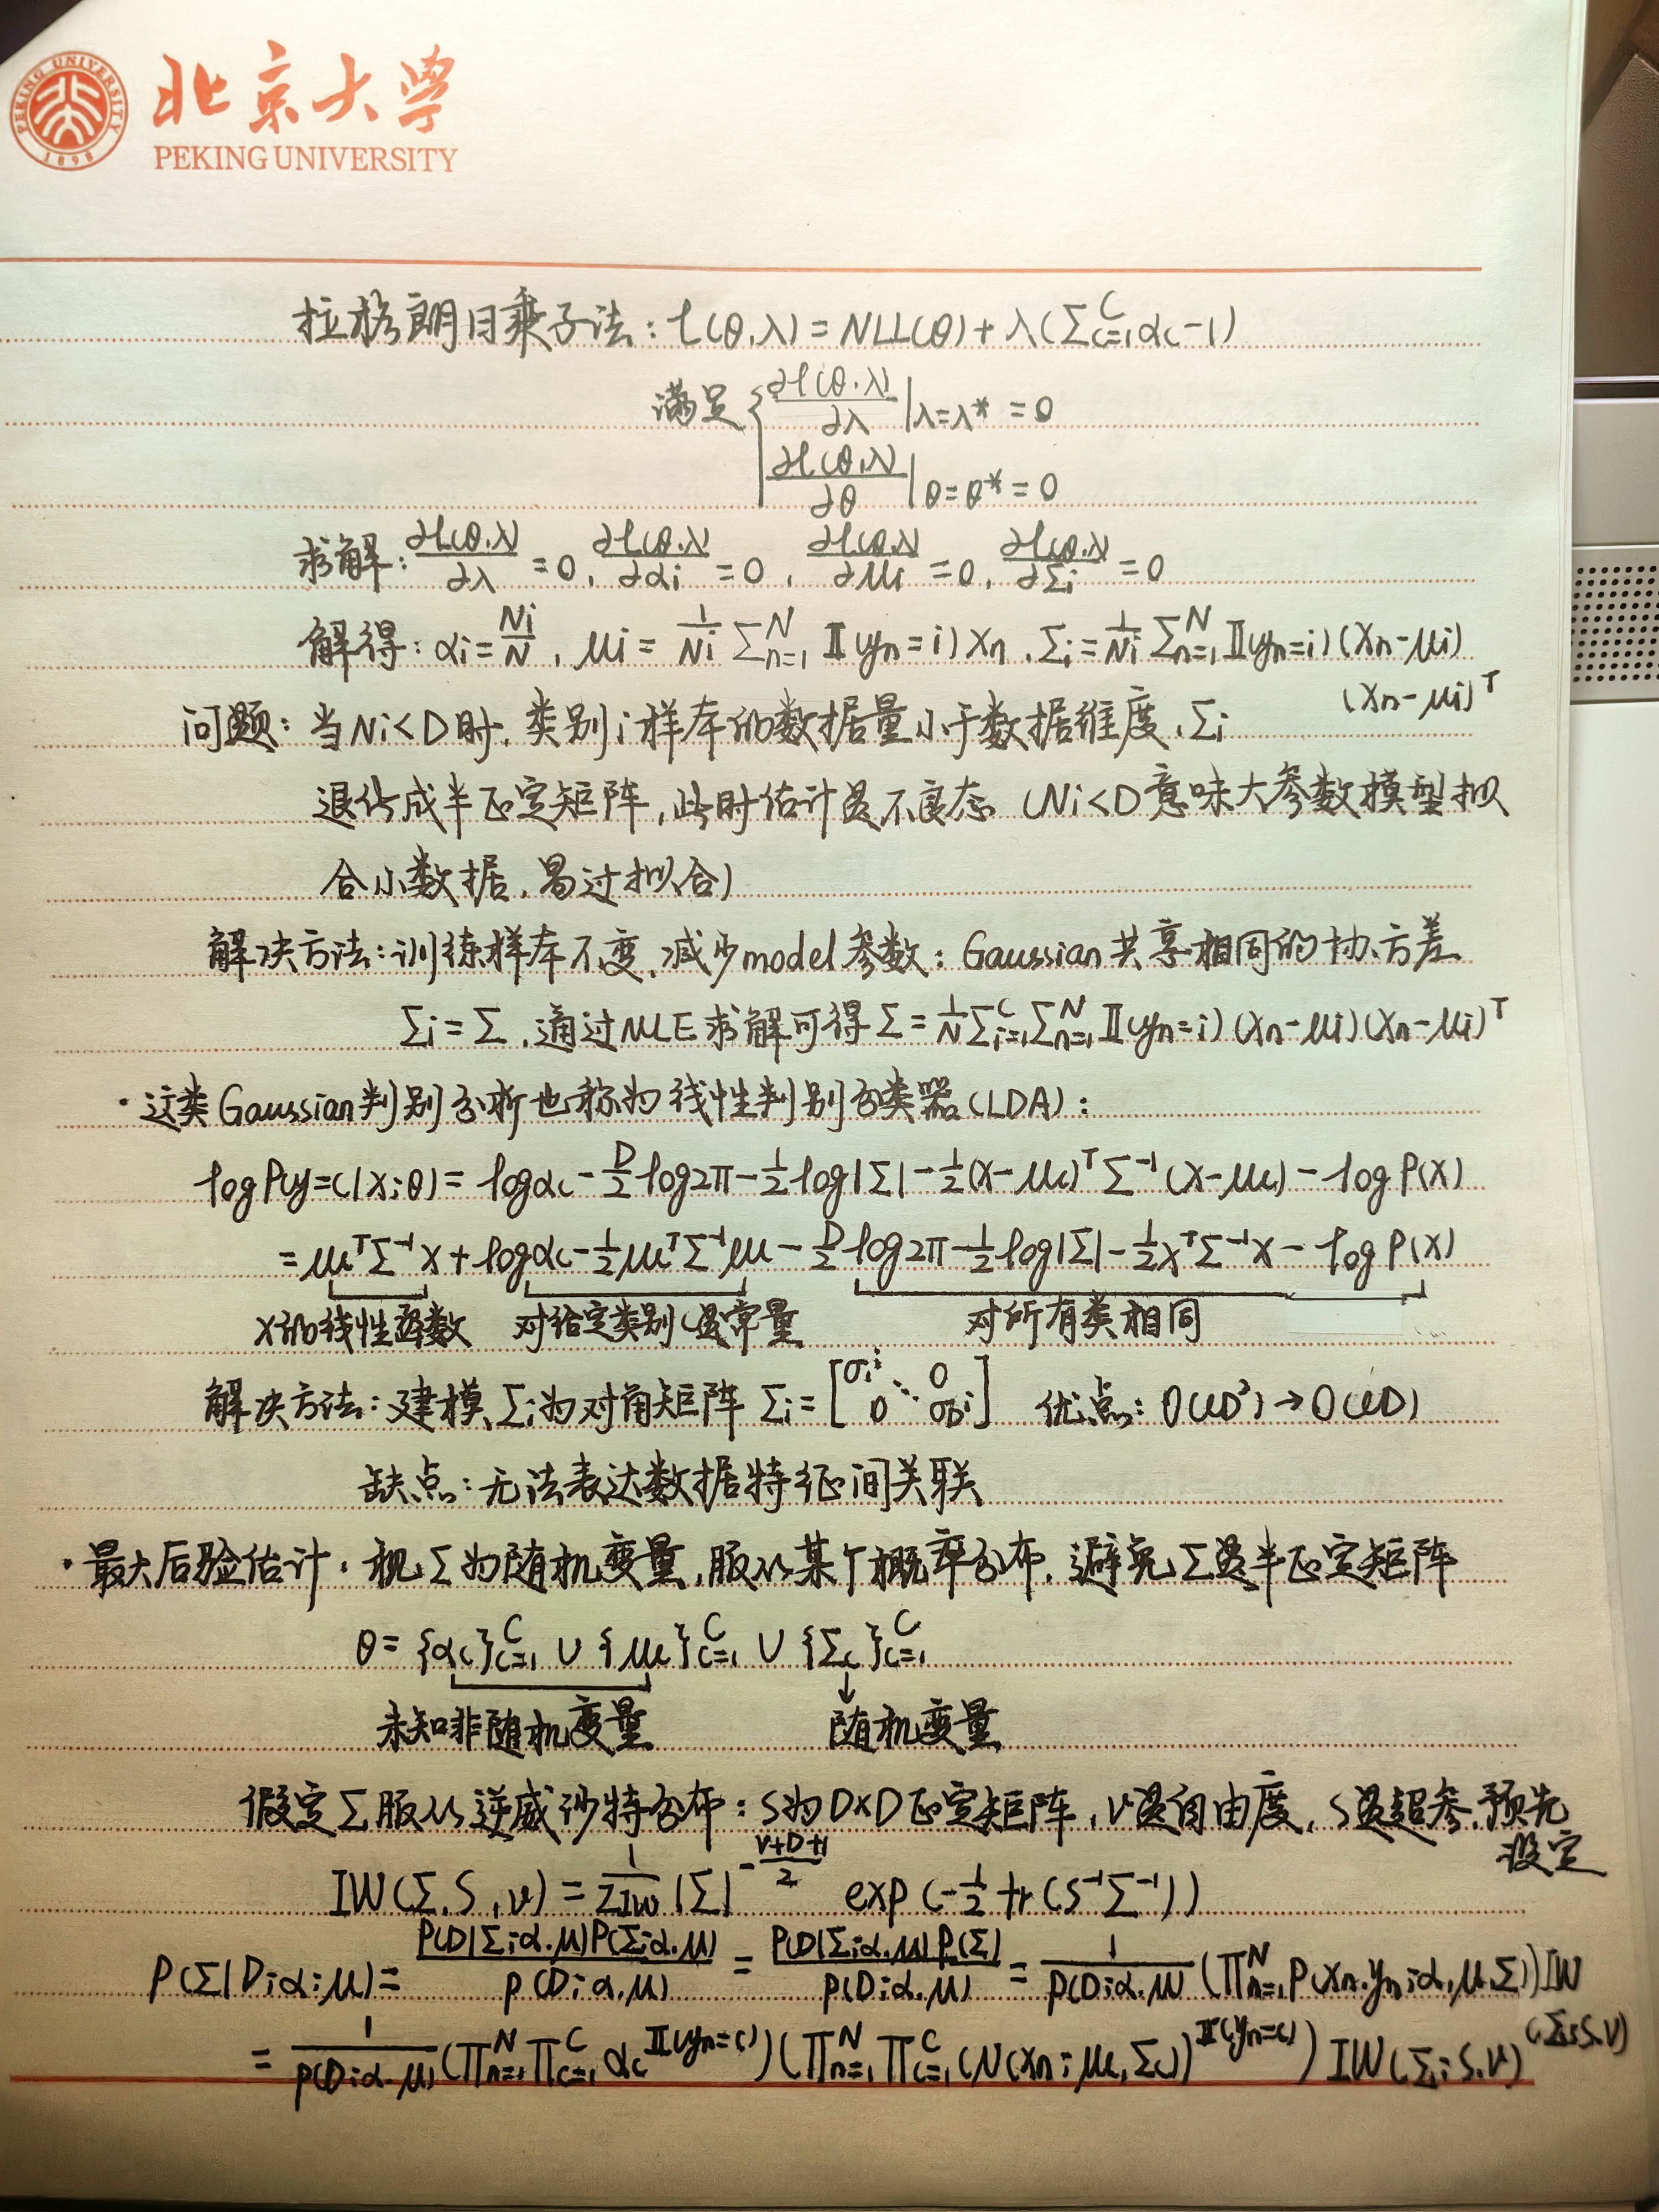 PEKING UNIVERSITY
1898
北京大学
PEKING UNIVERSITY
拉格朗日乘子法: ℓ(θ,λ) = NLL(θ) + λ(∑_{c=1}^{C} α_c - 1)
满足 { ∂ℓ(θ,λ)/∂λ |_{λ=λ*} = 0
∂ℓ(θ,λ)/∂θ |_{θ=θ*} = 0
求解: ∂ℓ(θ,λ)/∂λ = 0, ∂ℓ(θ,λ)/∂α_i = 0, ∂ℓ(θ,λ)/∂μ_i = 0, ∂ℓ(θ,λ)/∂Σ_i = 0
解得: α_i = N_i/N, μ_i = 1/N_i ∑_{n=1}^{N} 𝕀(y_n=i) x_n, Σ_i = 1/N_i ∑_{n=1}^{N} 𝕀(y_n=i)(x_n-μ_i)
(x_n-μ_i)^T
问题: 当N_i<D时, 类别i样本的数据量小于数据维度, Σ_i
退化成半正定矩阵, 此时估计是不良态 (N_i<D意味大参数模型拟
合小数据, 易过拟合)
解决方法: 训练样本不变, 减少model参数: Gaussian共享相同的协方差
Σ_i = Σ, 通过MLE求解可得 Σ = 1/N ∑_{i=1}^{C} ∑_{n=1}^{N} 𝕀(y_n=i)(x_n-μ_i)(x_n-μ_i)^T
· 这类Gaussian判别分析也称为线性判别分类器(LDA):
log P(y=c|x;θ) = log α_c - D/2 log 2π - 1/2 log|Σ| - 1/2 (x-μ_c)^T Σ^{-1} (x-μ_c) - log P(x)
= μ_c^T Σ^{-1} x + log α_c - 1/2 μ_c^T Σ^{-1} μ_c - D/2 log 2π - 1/2 log|Σ| - 1/2 x^T Σ^{-1} x - log P(x)
x的线性函数 对给定类别c是常量 对所有类相同
解决方法: 建模Σ_i为对角矩阵 Σ_i = [σ_1^i ⋱ 0 0 σ_D^i] 优点: O(CD²) → O(CD)
缺点: 无法表达数据特征间关联
· 最大后验估计: 视Σ为随机变量, 服从某个概率分布, 避免Σ是半正定矩阵
θ = {α_c}_{c=1}^{C} ∪ {μ_c}_{c=1}^{C} ∪ {Σ_c}_{c=1}^{C}
未知非随机变量 随机变量
假定Σ服从逆威沙特分布: S为D×D正定矩阵, ν是自由度, S是超参, 预先
设定
IW(Σ, S, ν) = 1/Z_{IW} |Σ|^{-(ν+D+1)/2} exp(-1/2 tr(S^{-1}Σ^{-1}))
P(Σ|D;α;μ) = P(D|Σ;α,μ)P(Σ;α,μ)/P(D;α,μ) = P(D|Σ;α,μ)P(Σ)/P(D;α,μ) = 1/P(D;α,μ) (∏_{n=1}^{N} P(x_n,y_n;α,μ,Σ)) IW
(Σ;S,ν)
= 1/P(D;α,μ) (∏_{n=1}^{N} ∏_{c=1}^{C} α_c^{𝕀(y_n=c)}) (∏_{n=1}^{N} ∏_{c=1}^{C} (N(x_n;μ_c,Σ_c))^{𝕀(y_n=c)}) IW(Σ;S,ν)